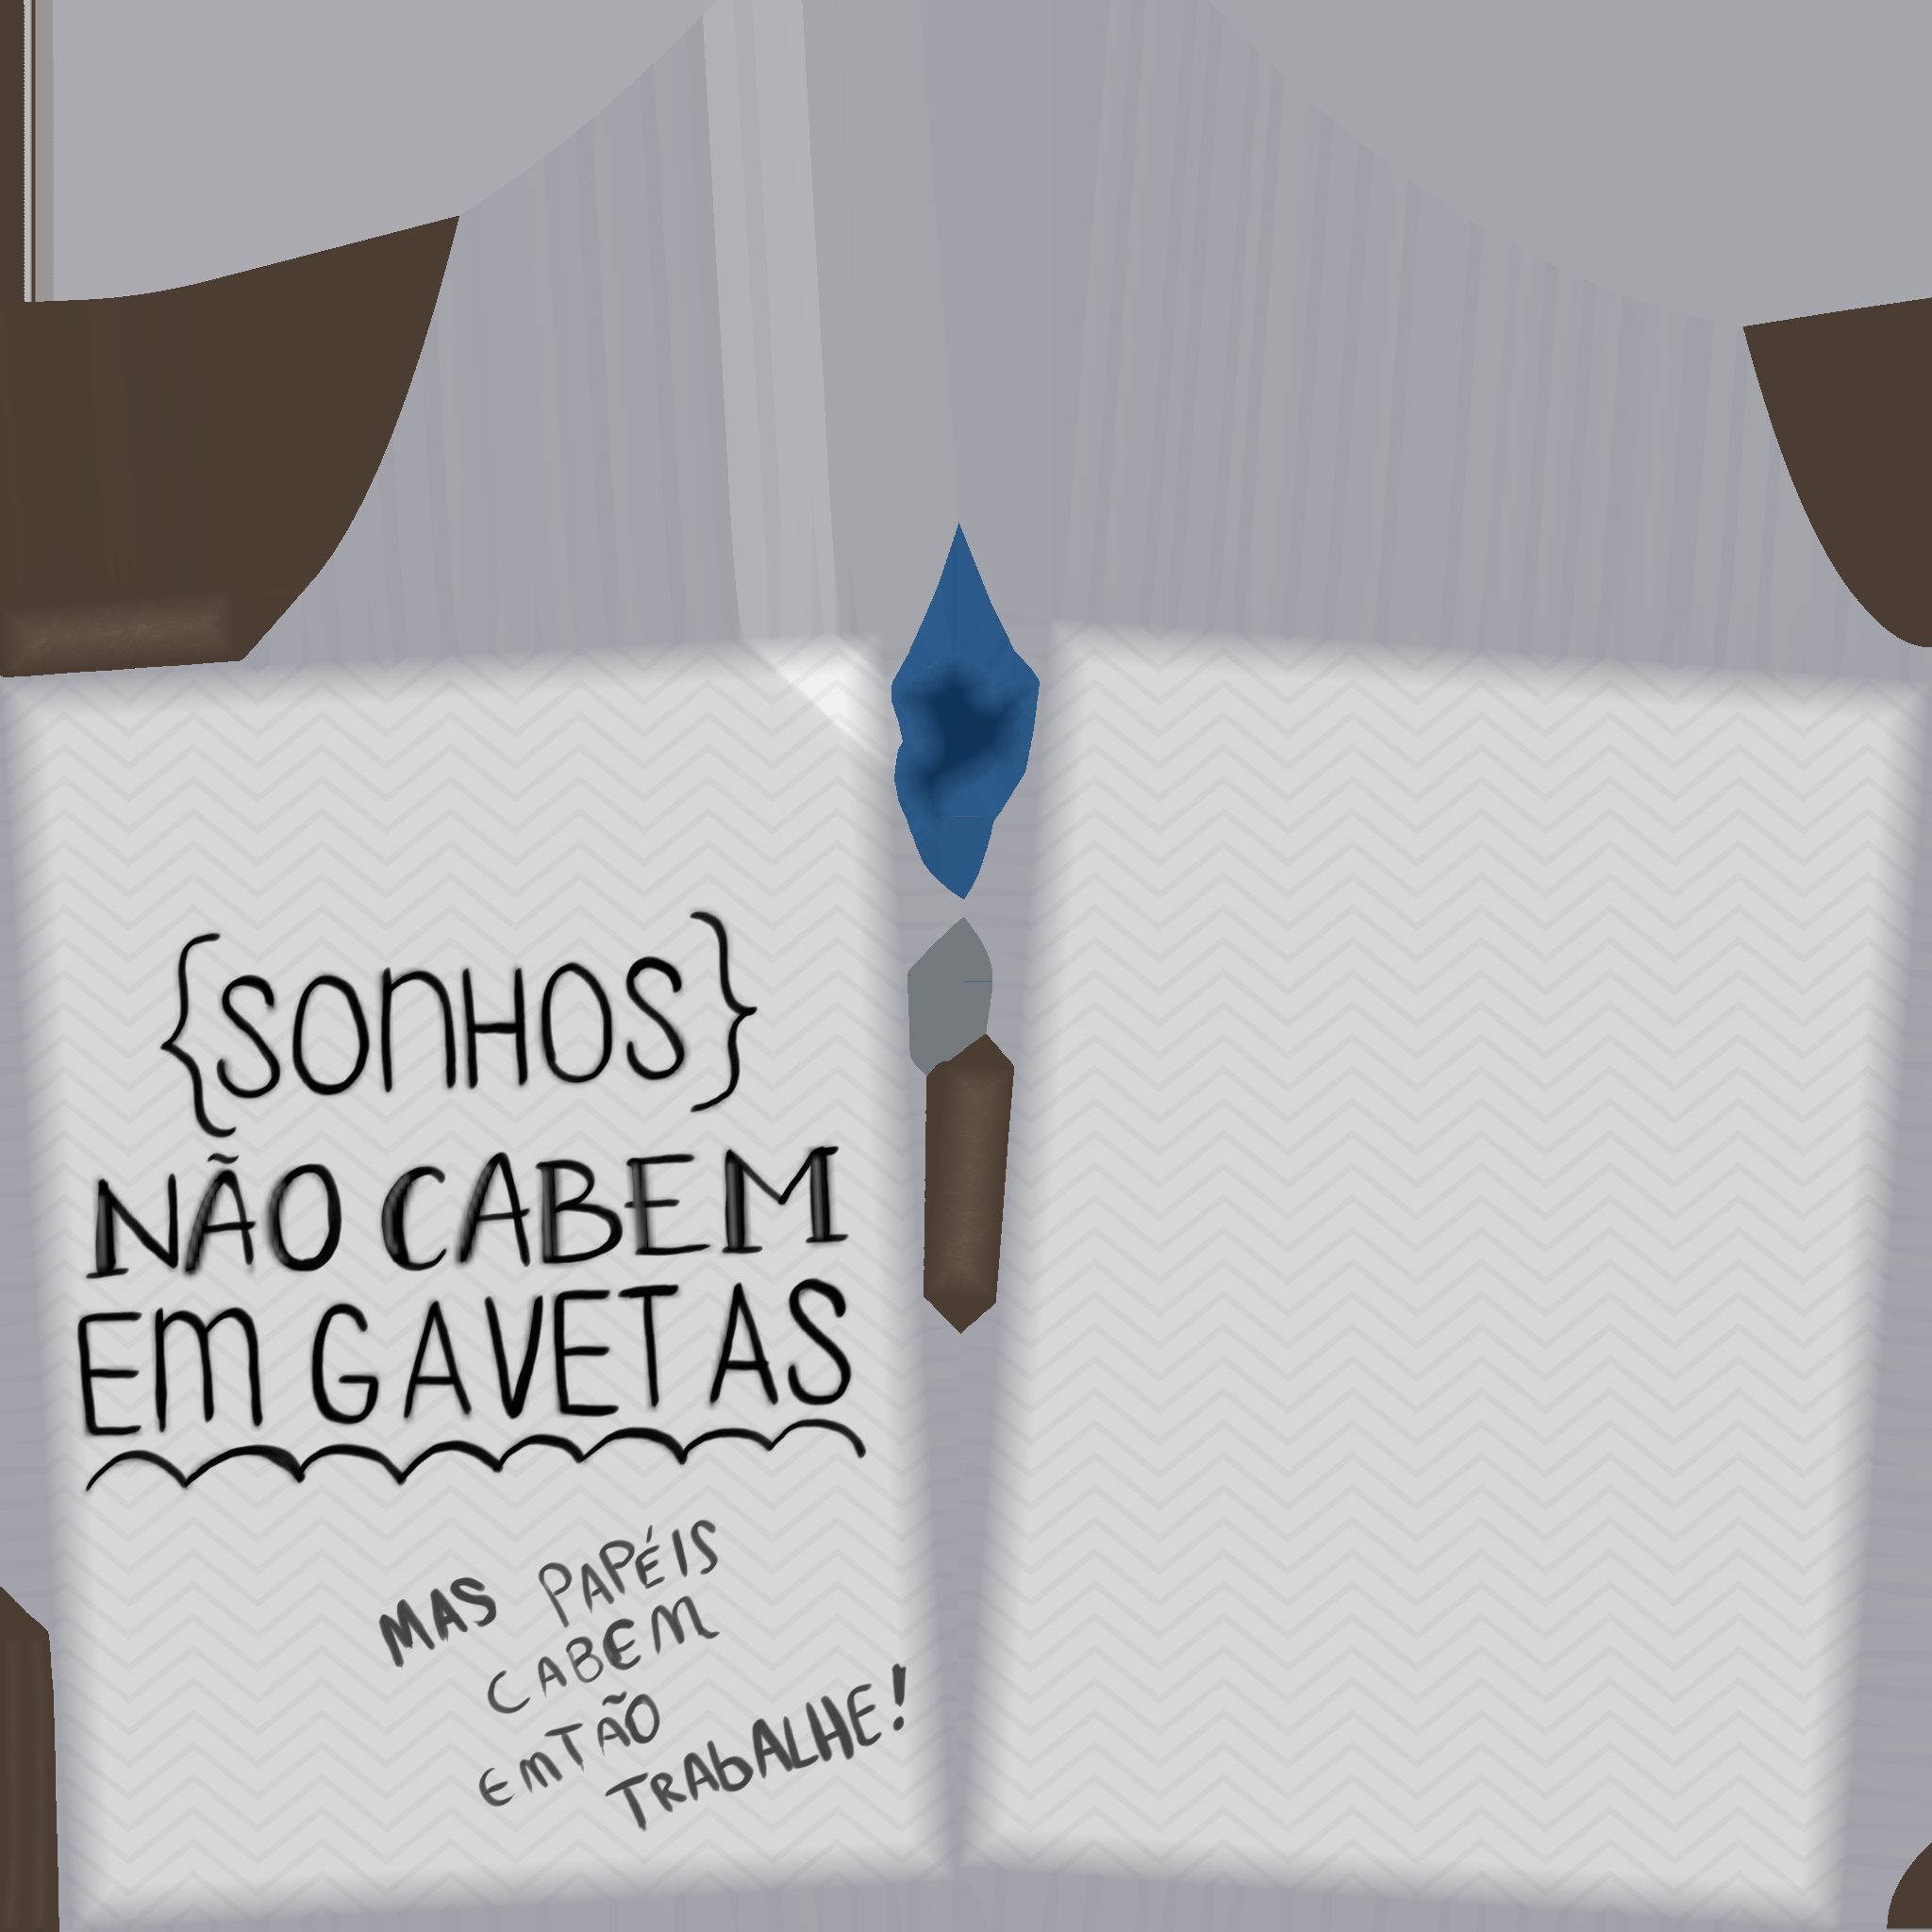 {SONHOS}
NÃO CABEM
EM GAVETAS
MAS PAPÉIS
CABEM
EMTÃO
TRAbALHE!